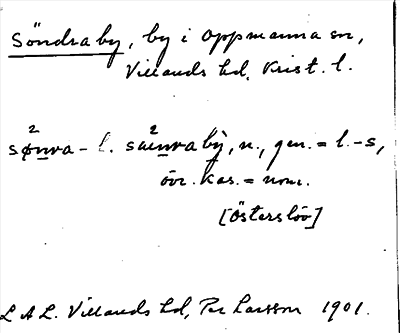 Söndraby, by i Oppmanna sn,
Villands hd, Krist. l.
sø²nra- l. sæ²nraby, n., gen. = l. -s,
övr. kas. = nom.
[Österslöv]
L A L. Villands hd, Per Larsson 1901.